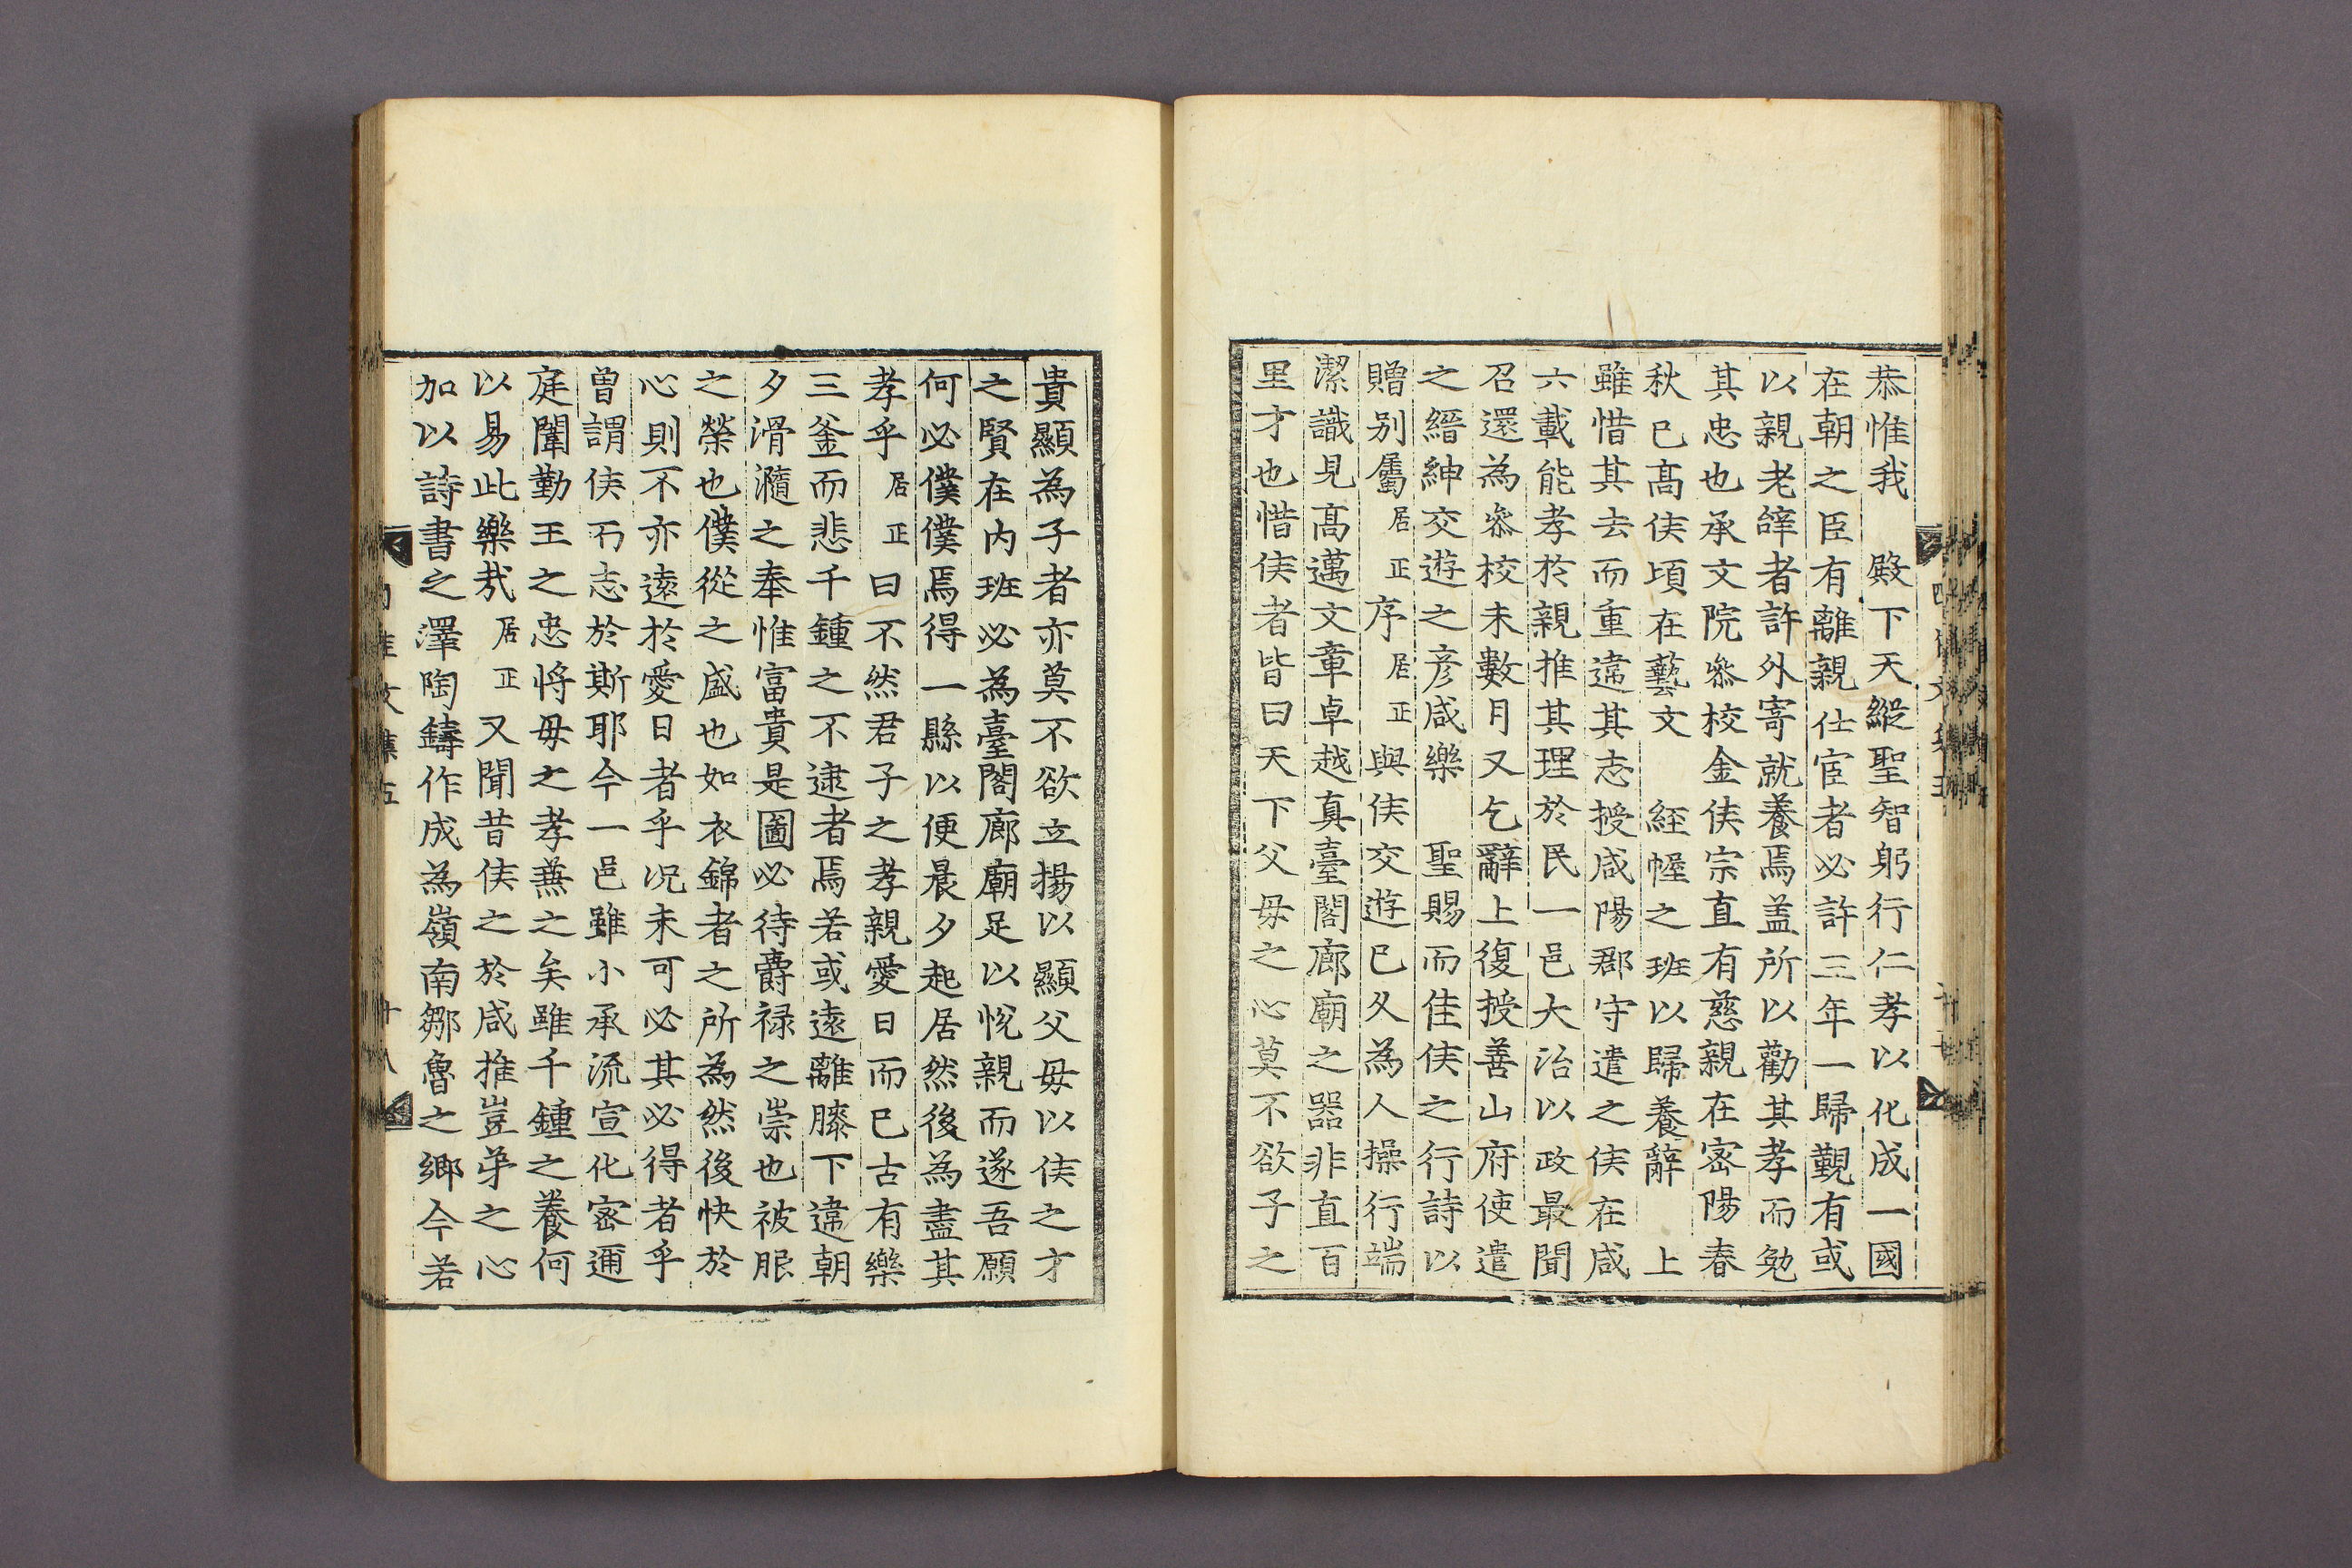 恭惟我　殿下天縱聖智躬行仁孝以化成一國
在朝之臣有離親仕宦者必許三年一歸覲有或
以親老辞者許外寄就養焉盖所以勸其孝而勉
其忠也承文院叅校金侯宗直有慈親在密陽春
秋已髙侯頃在藝文　經幄之班以歸養辭　上
雖惜其去而重違其志授咸陽郡守遣之侯在咸
六載能孝於親推其理於民一邑大治以政最聞
召還為叅校未數月又乞辭上復授善山府使遣
之縉紳交遊之彦咸樂　聖賜而佳侯之行詩以
贈别屬居正序居正與侯交遊已久為人操行端
潔識見髙邁文章卓越真臺閣廊廟之器非直百
里才也惜侯者皆曰天下父母之心莫不欲子之
貴顯為子者亦莫不欲立揚以顯父母以侯之才
之賢在内班必為臺閣廊廟足以悅親而遂吾願
何必僕僕焉得一縣以便晨夕起居然後為盡其
孝乎居正曰不然君子之孝親愛日而已古有樂
三釜而悲千鍾之不逮者焉若或遠離膝下違朝
夕滑瀡之奉惟富貴是圖必待爵禄之崇也被服
之榮也僕從之盛也如衣錦者之所為然後快於
心則不亦遠於愛日者乎况未可必其必得者乎
曽謂侯而志於斯耶今一邑雖小承流宣化密邇
庭闈勤王之忠將母之孝蕪之矣雖千鍾之養何
以易此樂㦲居正又聞昔侯之於咸推豈弟之心
加以詩書之澤陶鑄作成為嶺南鄒魯之鄉今若